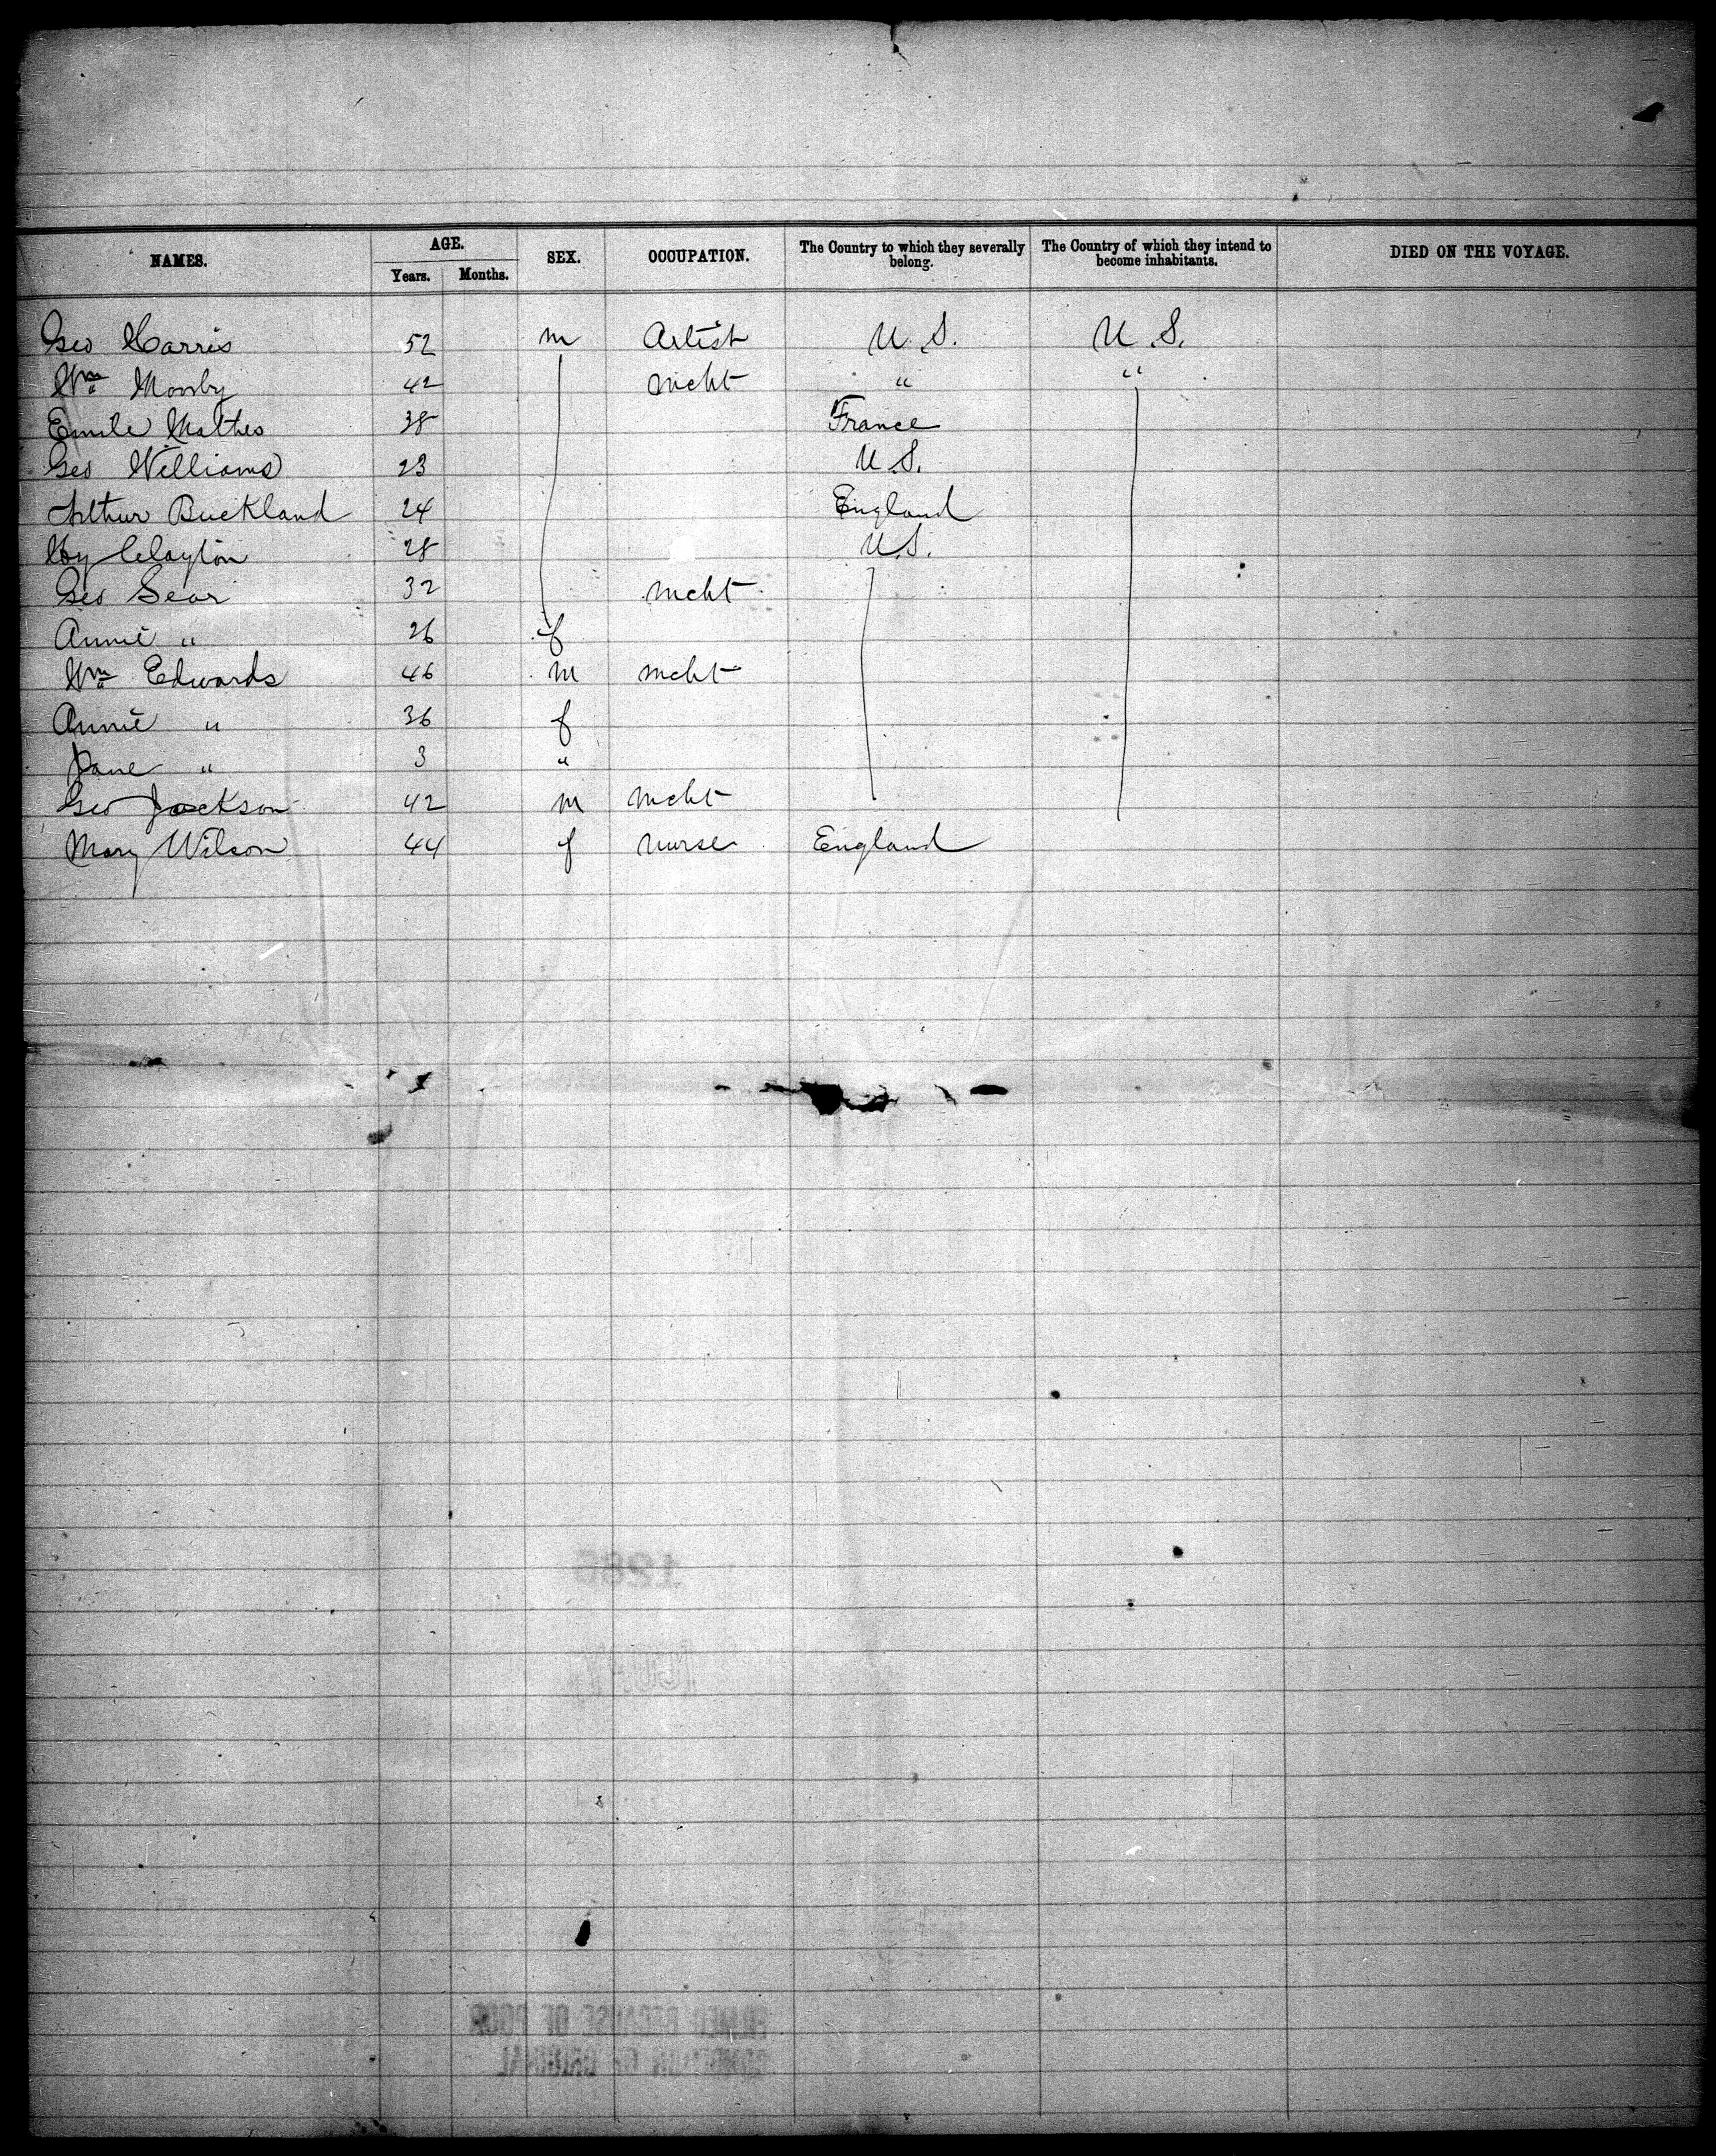 NAMES. AGE. SEX. OCCUPATION. The Country to which they severally belong. The Country of which they intend to become inhabitants. DIED ON THE VOYAGE.
Years. Months.
Geo Harris 52 m Artist U.S. U.S.
Wm Moorby 42 mcht " "
Emile Mathes 38 France
Geo Williams 23 U.S.
Arthur Buckland 24 England
Hy Clayton 28 U.S.
Geo Sear 32 mcht
Annie " 26 f
Wm Edwards 46 m mcht
Annie " 36 f
Jane " 3 "
Geo Jackson 42 m mcht
Mary Wilson 44 f nurse England
1286
FILMED BECAUSE OF POOR
CONDITION OF ORIGINAL